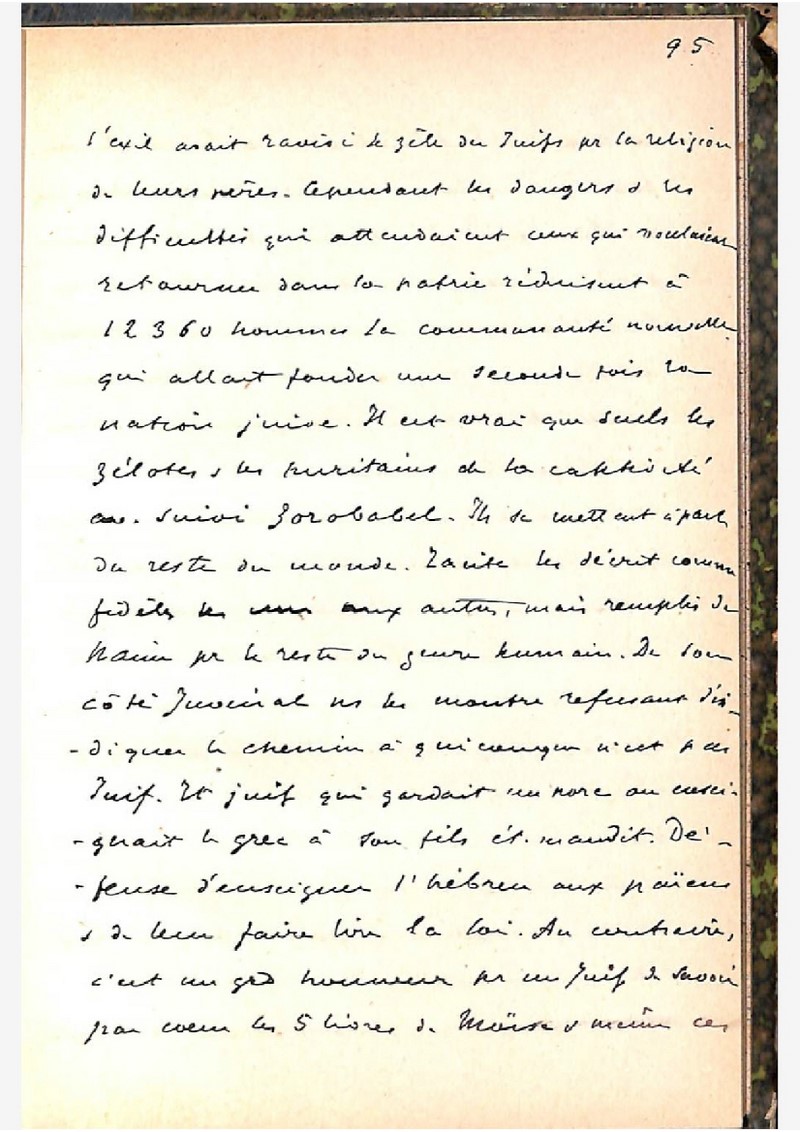 95
l'exil avait ravivé le zèle des Juifs pr la religion
de leurs pères. Cependant les dangers & les
difficultés qui attendaient ceux qui voulaient
retourner dans la patrie réduisent à
12360 hommes la communauté nouvelle
qui allait fonder une seconde fois la
nation juive. Il est vrai que seuls les
zélotes & les puritains de la captivité
av. suivi Zorobabel. Ils se mettent à part
du reste du monde. Tacite les décrit comme
fidèles les uns aux autres, mais remplis de
haine pr le reste du genre humain. De son
côté Juvénal ns les montre refusant d'in-
-diquer le chemin à quiconque n'est pas
Juif. Et juif qui gardait un porc ou ensei-
-gnait le grec à son fils ét. maudit. Dé-
-fense d'enseigner l'hébreu aux païens
& de leur faire lire la loi. Au contraire,
c'est un grd honneur pr un Juif de savoir
par coeur les 5 livres de Moïse & même ces